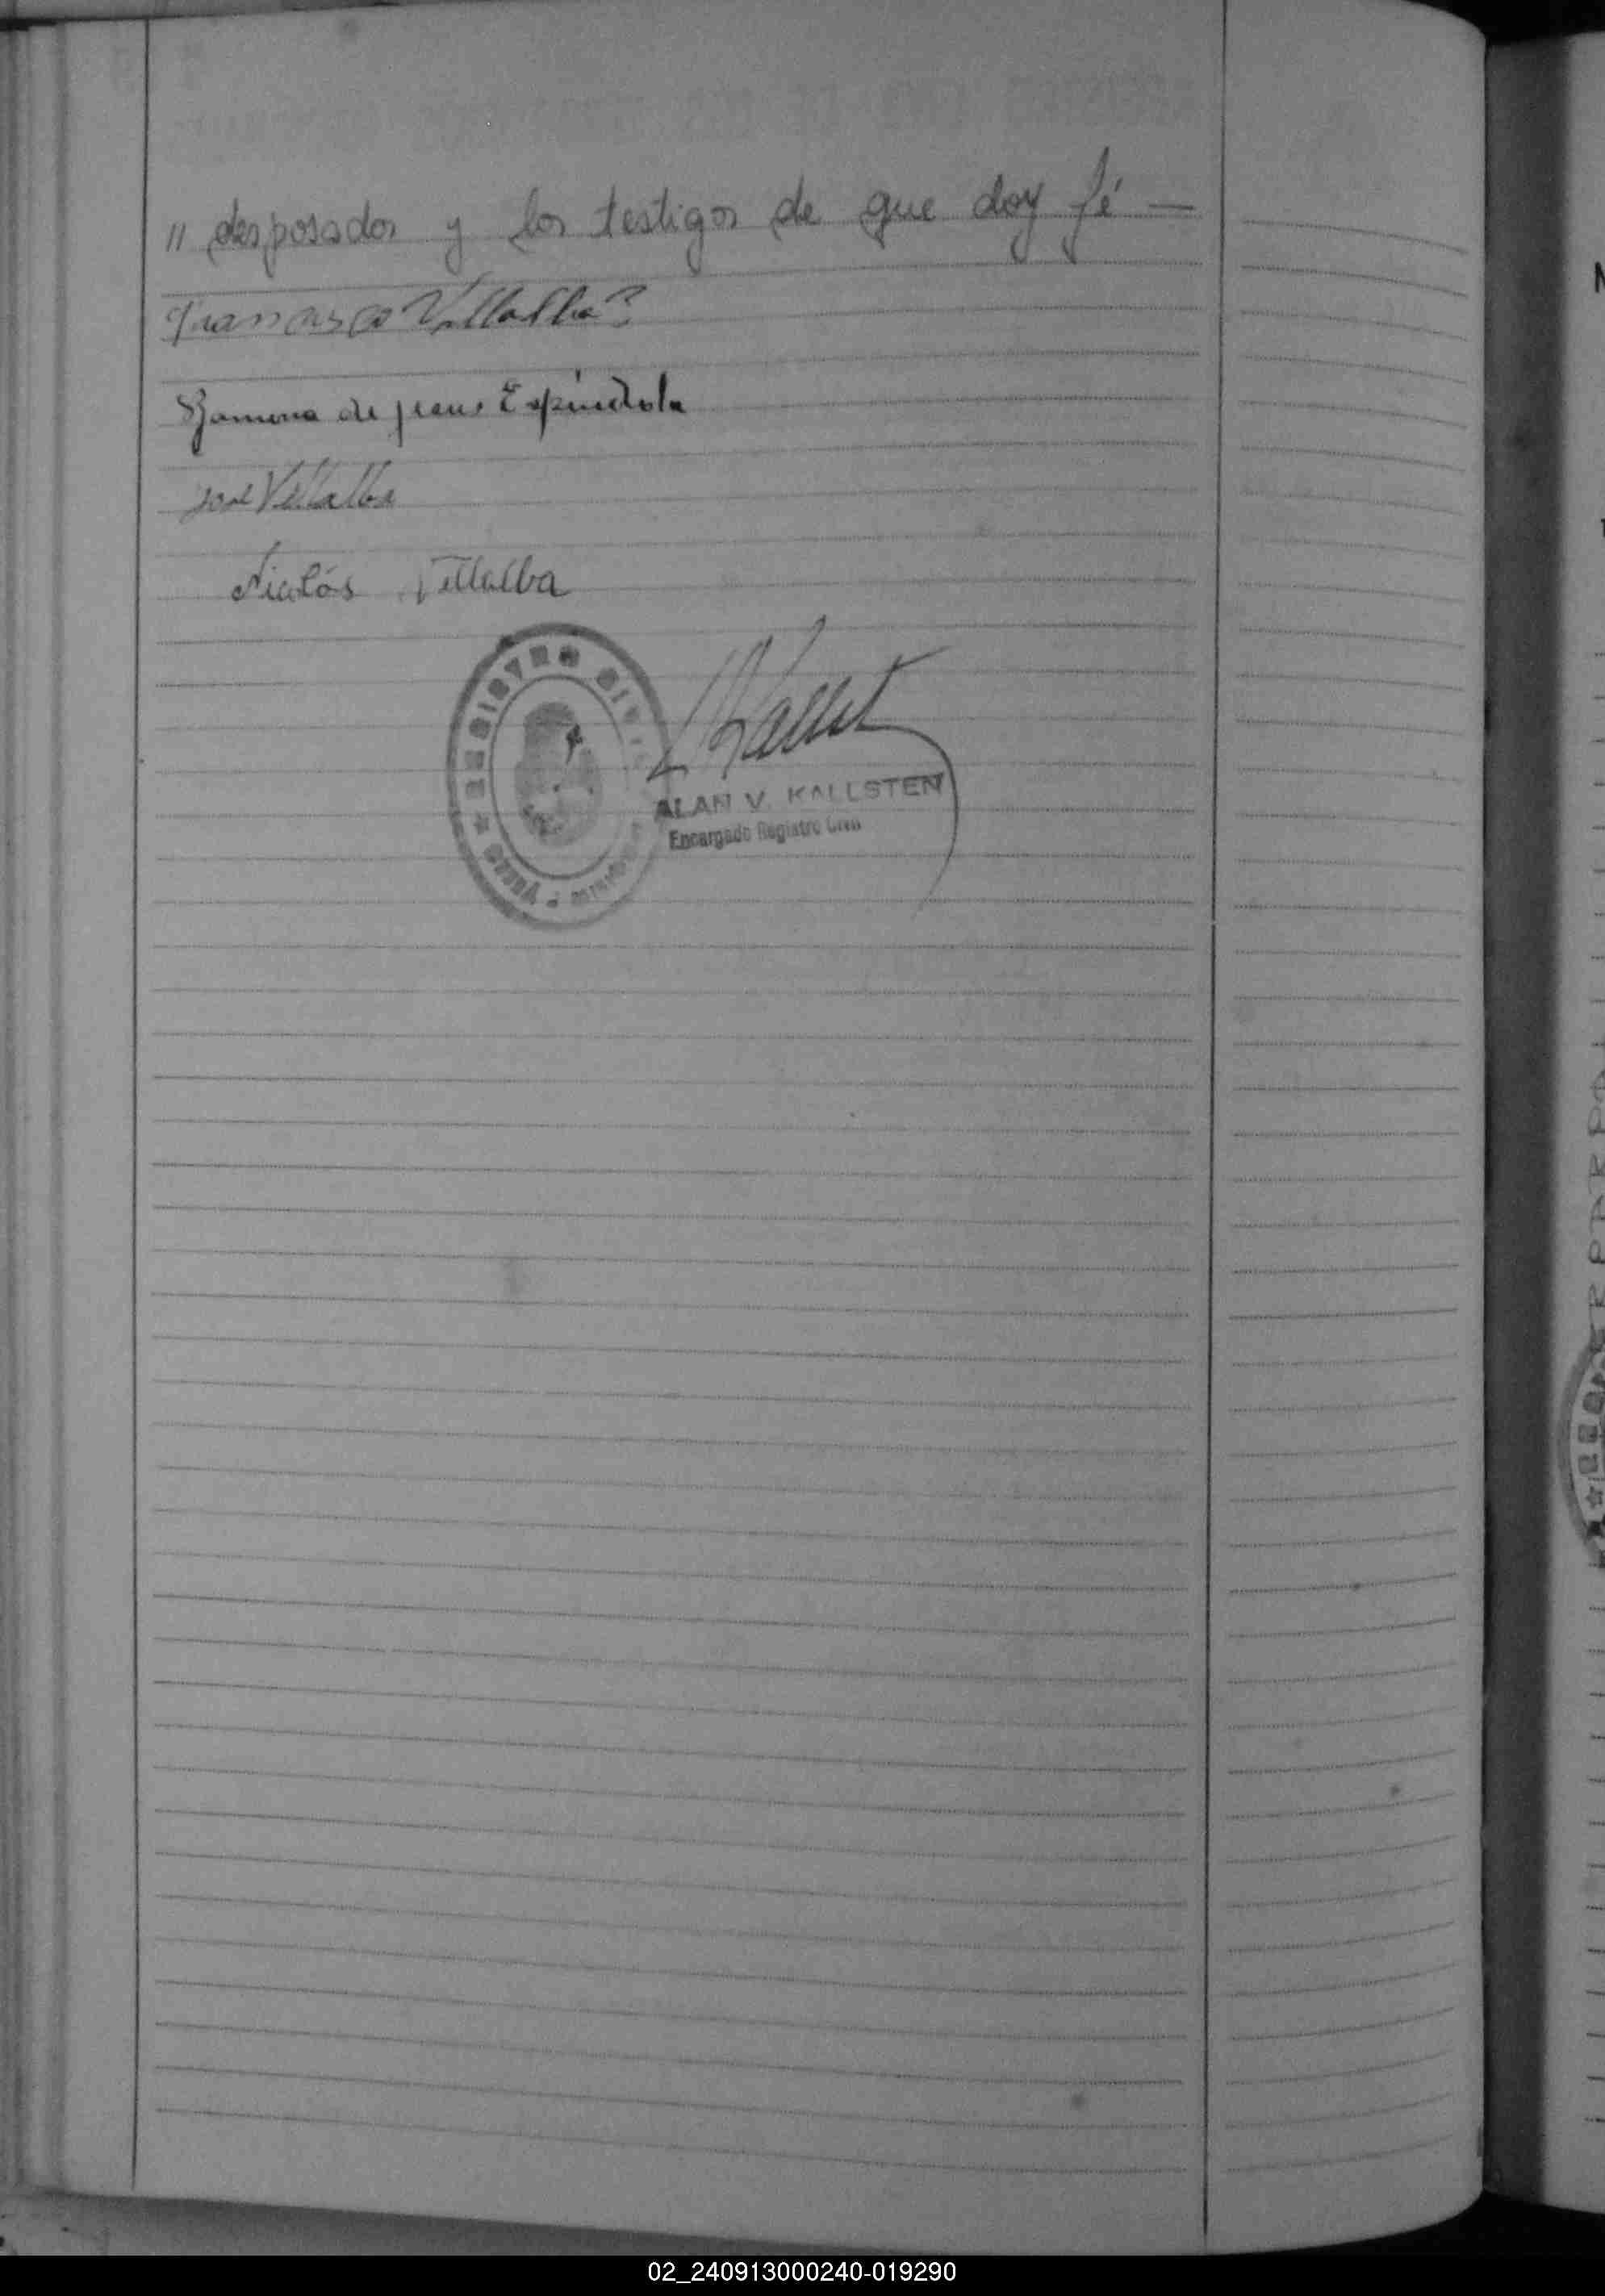 " desposados y los testigos de que doy fé —
Francisco Villalba
Ramona de jesus Espindola
José Villalba
Nicolás Villalba
REGISTRO CIVIL
ALAN V. KALLSTEN
Encargado Registro Civil
02_240913000240-019290